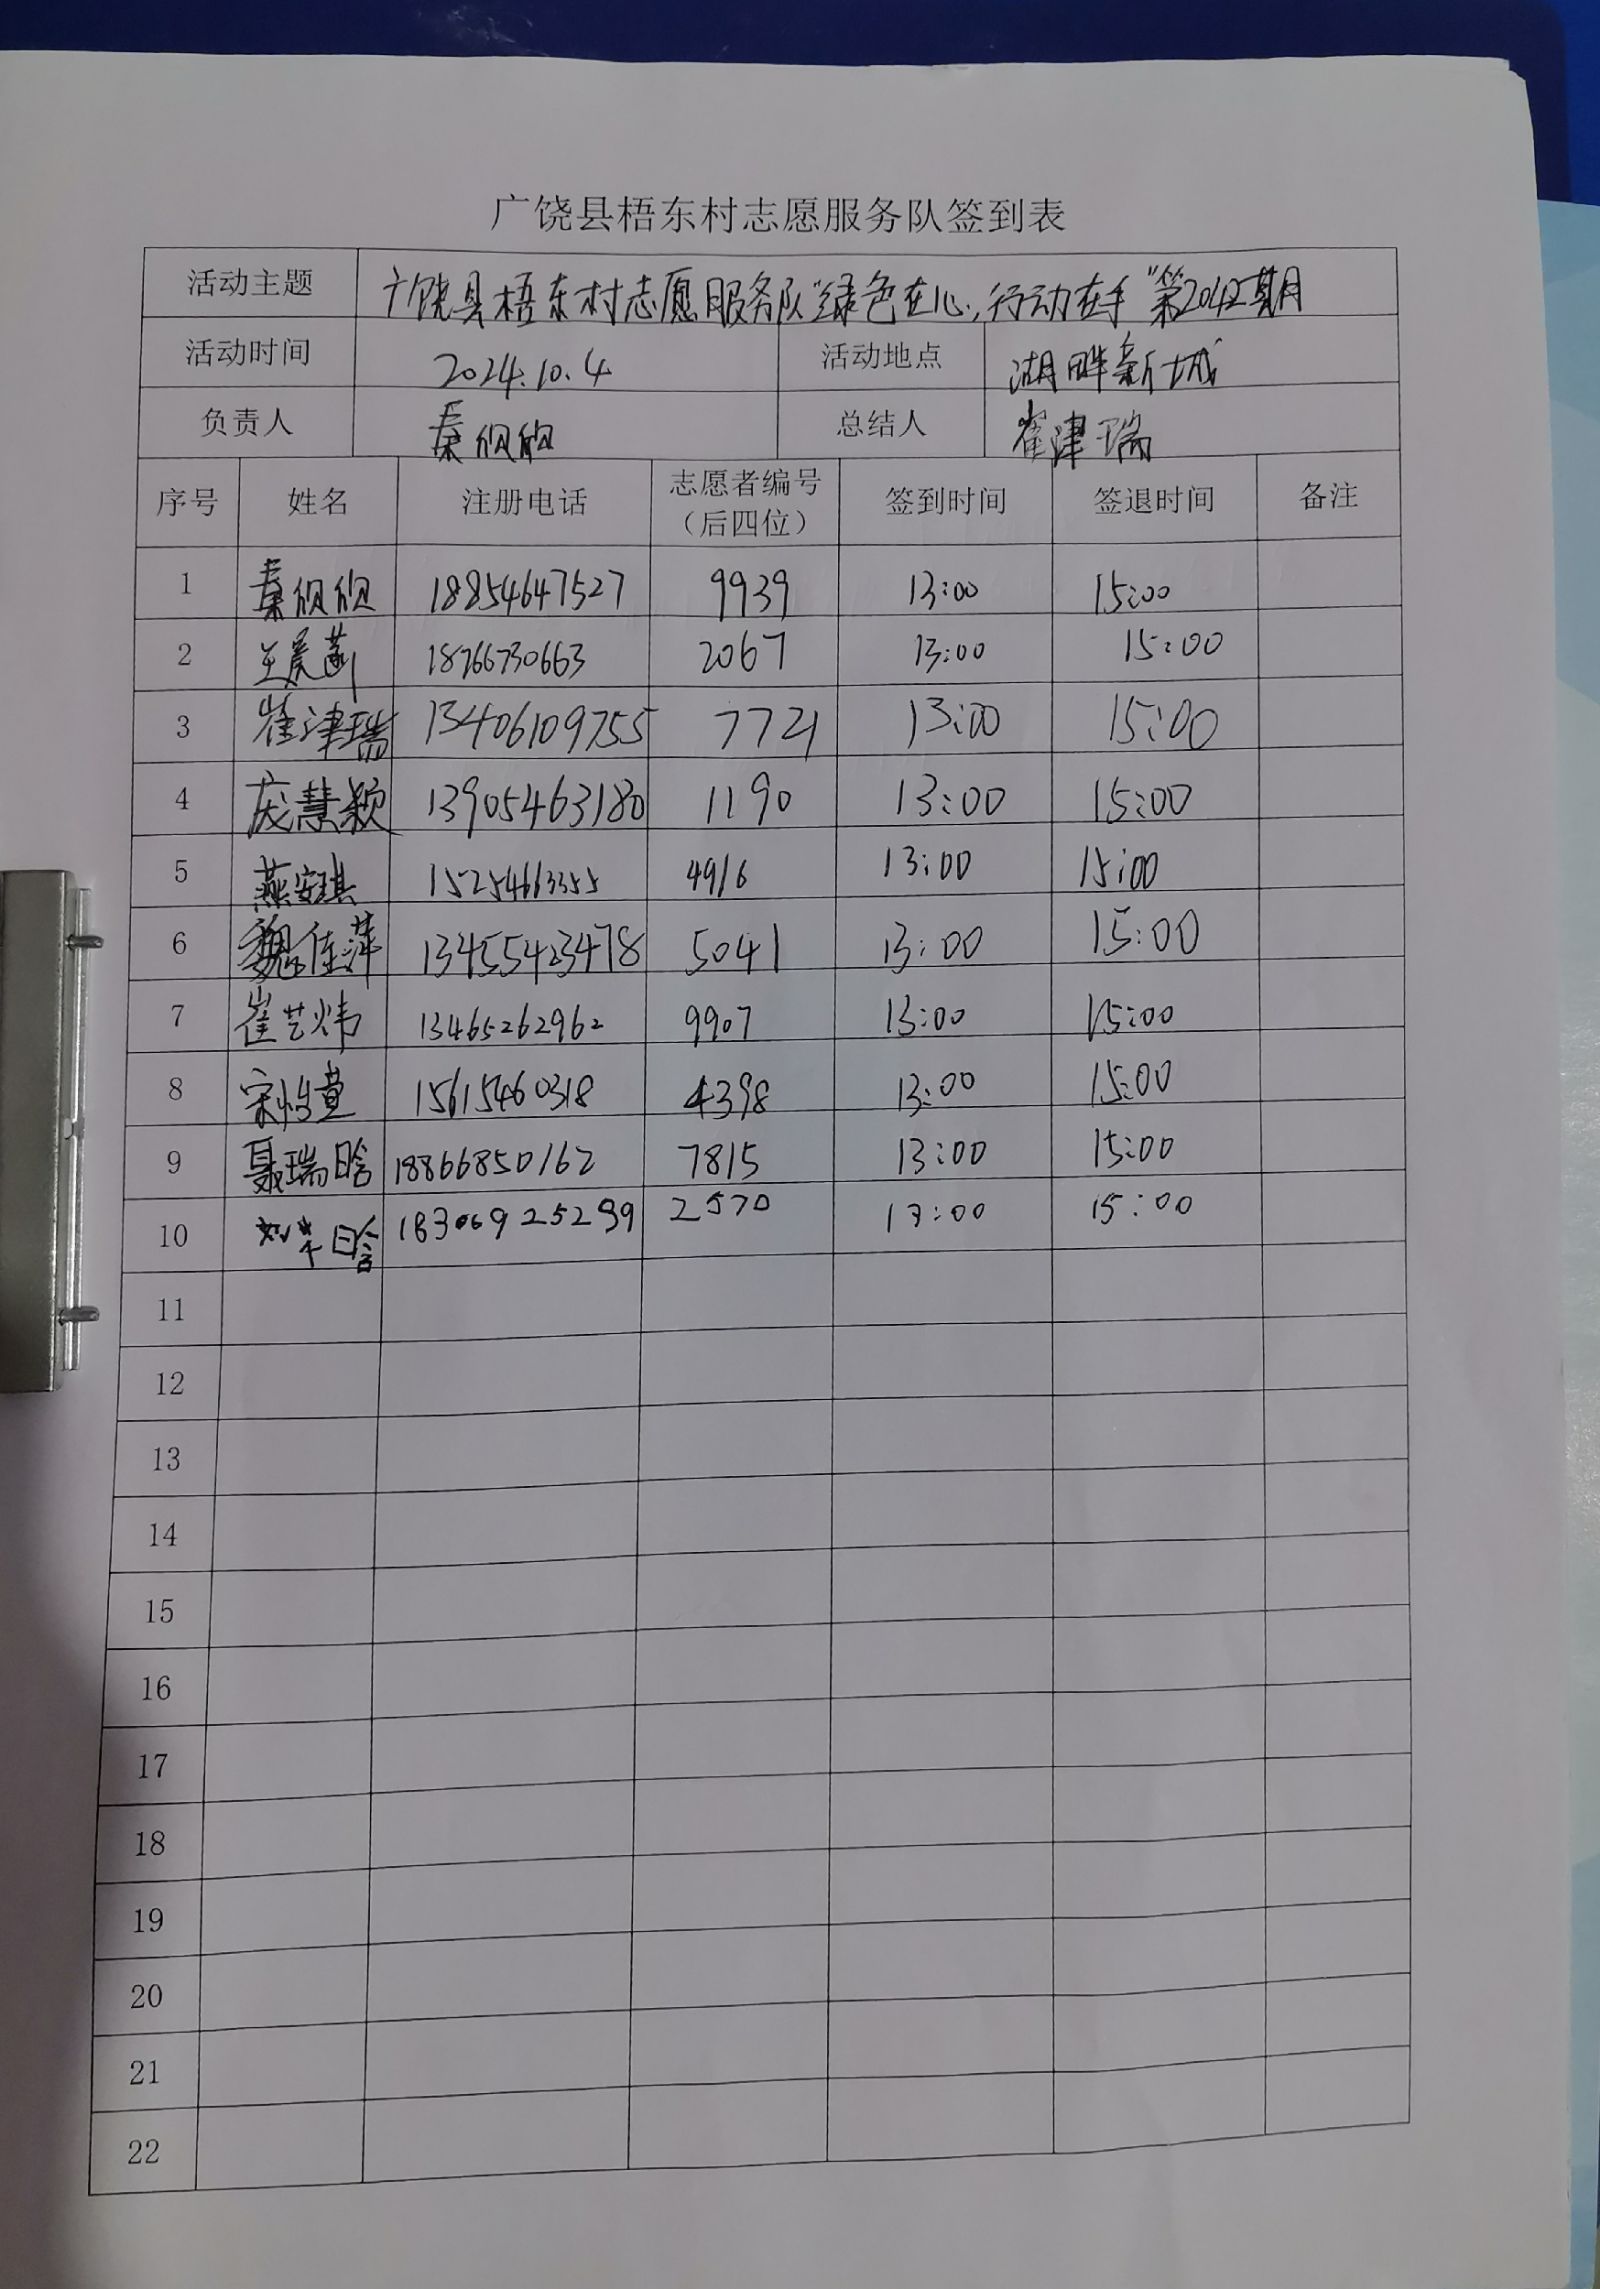 广饶县梧东村志愿服务队签到表
活动主题 广饶县梧东村志愿服务队“绿色在心,行动在手”第2042期
活动时间 2024.10.4 活动地点 湖畔新城
负责人 秦 总结人 崔津瑞
序号 姓名 注册电话 志愿者编号（后四位） 签到时间 签退时间 备注
1 秦 18854647527 9939 13:00 15:00
2 18766730663 2067 13:00 15:00
3 崔津瑞 13406109755 7721 13:00 15:00
4 庞慧颖 13905463180 1190 13:00 15:00
5 燕安琪 15254663355 4916 13:00 15:00
6 魏佳萍 13455423478 5041 13:00 15:00
7 崔艺炜 13465262962 9907 13:00 15:00
8 宋怡萱 15615460318 4398 13:00 15:00
9 聂瑞晗 18866850162 7815 13:00 15:00
10 晗 18306925299 2570 13:00 15:00
11
12
13
14
15
16
17
18
19
20
21
22